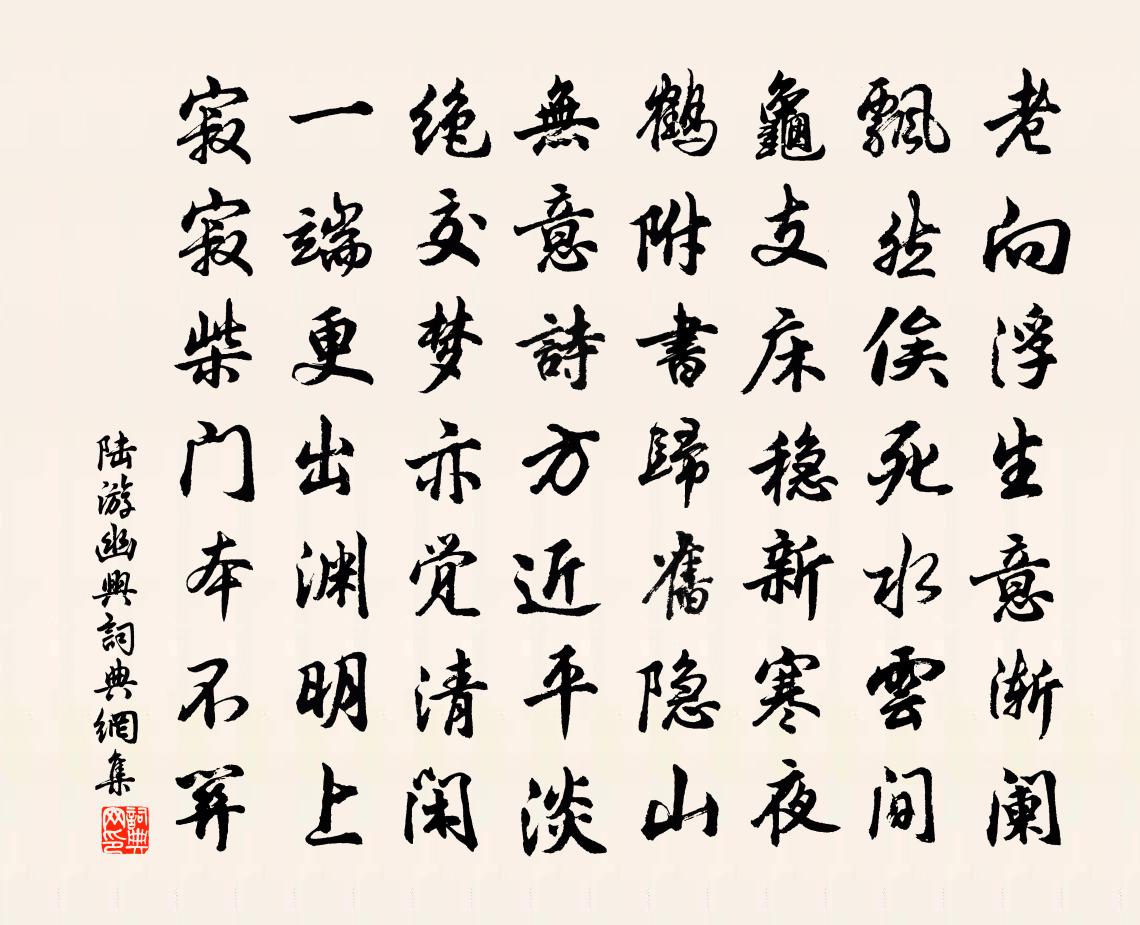 老向浮生意渐阑
飘然俟死水雲间
龜支床稳新寒夜
鹤附書歸舊隐山
無意詩方近平淡
绝交梦亦觉清闲
一端更出渊明上
寂寂柴门本不関
陆游幽興詞典網集
詞典
网印